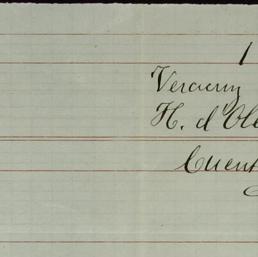 1
Veracruz
H. d'Ole
Cuent